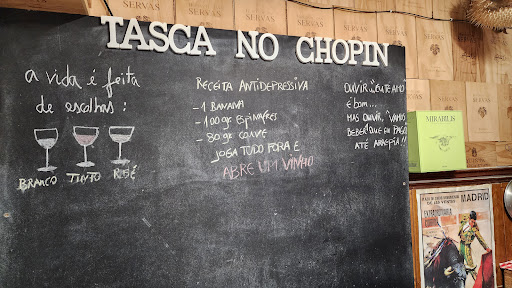 SERVAS
SERVAS
SERVAS
TASCA NO CHOPIN
a vida é feita
de escolhas:
BRANCO TINTO ROSÉ
RECEITA ANTIDEPRESSIVA
- 1 BANANA
- 100gr ESPINAFRES
- 80gr COUVE
JOGA TUDO FORA E
ABRE UM VINHO
OUVIR "EU TE AMO
É bom...
MAS OUVIR, "VAMOS
BEBER QUE EU PAGO"
ATÉ ARREPIA!!
MIRABILIS
MADRID